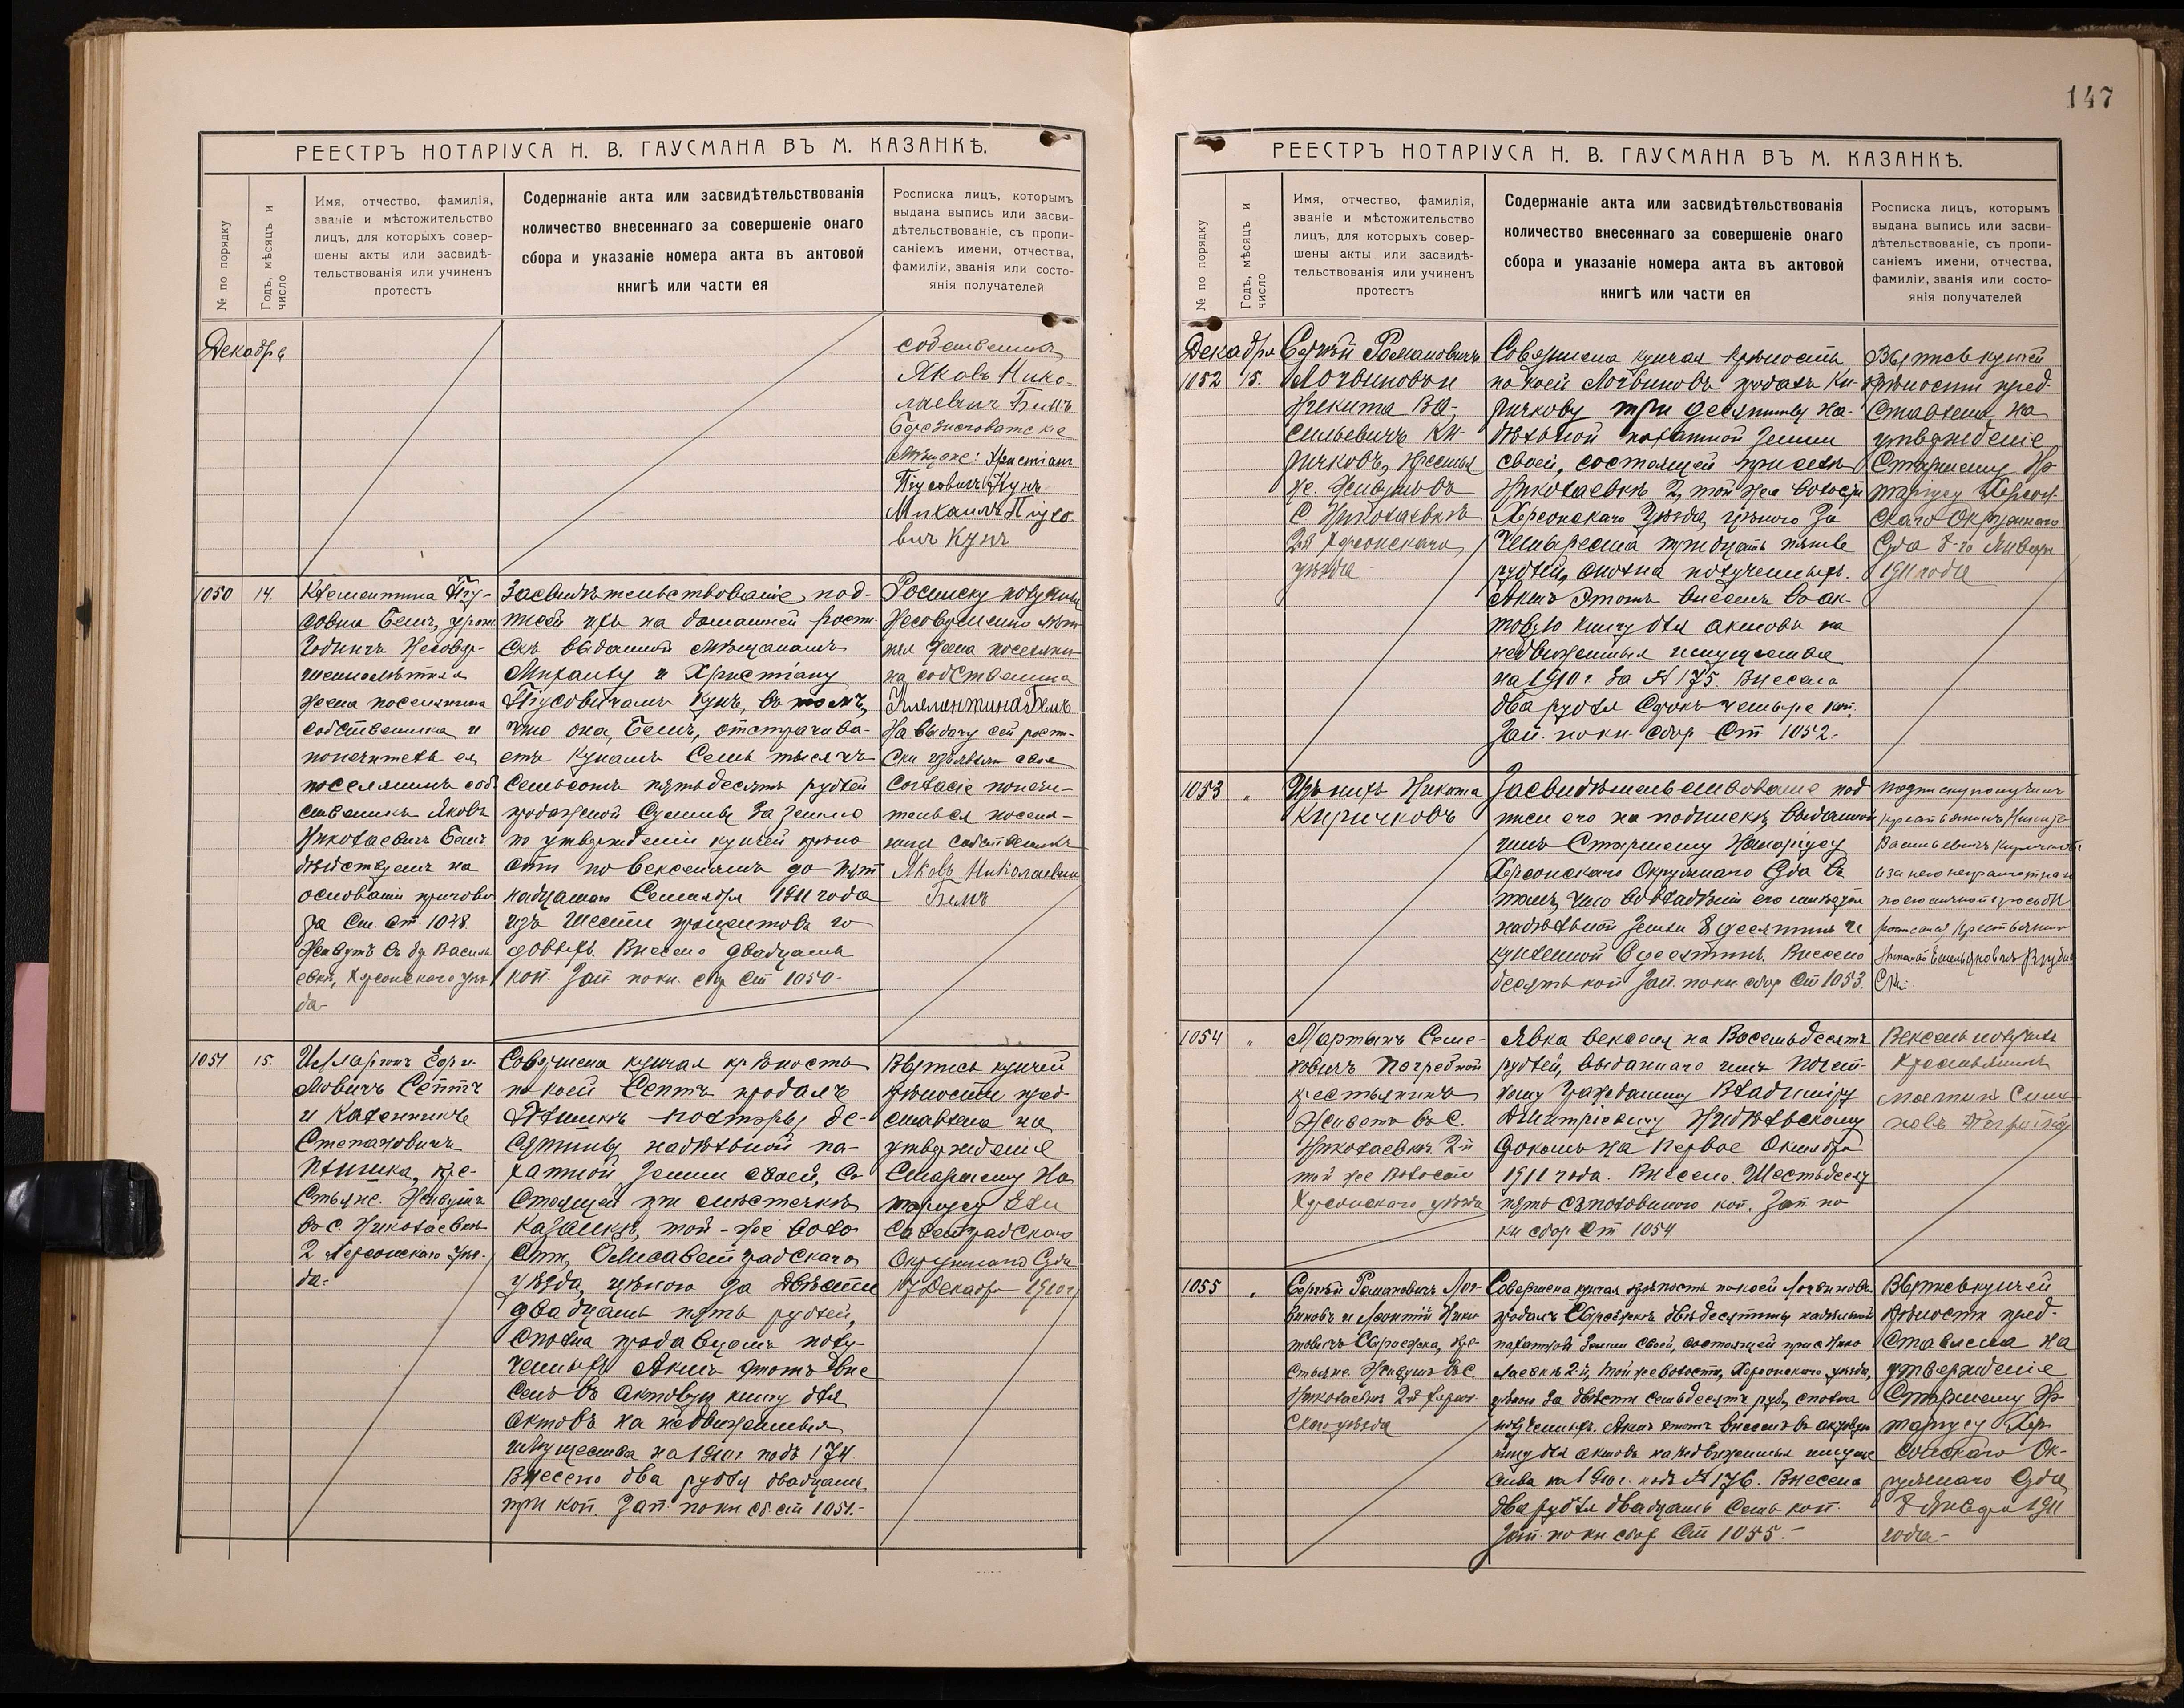 РЕЕСТРЪ НОТАРІУСА Н. В. ГАУСМАНА ВЪ М. КАЗАНКѢ.
№ по порядку
Годъ, мѣсяцъ и число
Имя, отчество, фамилія,
званіе и мѣстожительство
лицъ, для которыхъ совер-
шены акты или засвидѣ-
тельствованія или учиненъ
протестъ
Содержаніе акта или засвидѣтельствованія
количество внесеннаго за совершеніе онаго
сбора и указаніе номера акта въ актовой
книгѣ или части ея
Росписка лицъ, которымъ
выдана выпись или засви-
дѣтельствованіе, съ пропи-
саніемъ имени, отчества,
фамиліи, званія или состо-
янія получателей
Декабря
собственникъ
Яковъ Нико-
лаевичъ Бемъ
Березнеговатскіе
мѣщане: Христіанъ
Піусовичъ Кунъ
Михаилъ Піусо-
вичъ Кунъ
1050
14.
Клементина Піу-
совна Бемъ, урож.
Несовер-
шеннолѣтняя
жена поселянина
собственника и
попечитель ея
поселянинъ соб-
ственникъ Яковъ
Николаевичъ Бемъ
дѣйствуетъ на
основаніи приговора
за см. ст 1048.
Живутъ въ др Василь
евкѣ, Херсонскаго уѣз-
да-
Засвидѣтельствованіе под-
писей ихъ на домашней роспи-
скѣ выданной мѣщанамъ
Михаилу и Христіану
Піусовичамъ Кунъ, въ томъ,
что она, Бемъ, отстрачива-
етъ Кунамъ Семь тысячъ
Семьсотъ пятьдесятъ рублей
продажной суммы за землю
по утвержденіи купчей крѣпо
сти по векселямъ до пят
надцатаго Сентября 1911 года
изъ шести процентовъ го
довыхъ. Внесено двадцать
коп. Зап по кн. сбр Ст 1050-
Росписку получила
Несовершеннолѣт-
няя жена поселяни-
на собственника
Клементина Бемъ
На выдачу сей роспи-
ски изъявляю свое
согласіе попечи-
тель ея поселя-
нинъ собственникъ
Яковъ Николаевич
Бемъ
1051
15.
Илларіонъ Ефи-
мовичъ Септъ
и Каленникъ
Степановичъ
Птишка, кре-
стьяне. Живутъ
въ с. Николаевкѣ
2 Херсонскаго Уѣз-
да-
Совершена купчая крѣпость
по коей Септъ продалъ
Птишкѣ полторы де-
сятины надѣльной па-
хатной земли своей, со
стоящей при мѣстечкѣ
Казанкѣ, той-же воло
сти, Елисаветградскаго
уѣзда, цѣною за двѣсти
двадцать пять рублей,
сполна продавцомъ полу-
ченныхъ. Актъ этотъ вне
сенъ въ актовую книгу для
актовъ на недвижимыя
имущества на 1910 г подъ 174
Внесено два рубля двадцать
три коп. Зап. по кн сб ст 1051.-
Выпись купчей
крѣпости пред-
ставлена на
утвержденіе
Старшему Но
таріусу Ели
саветградскаго
Окружнаго Суда
17 Декабря 1910 г
147
РЕЕСТРЪ НОТАРІУСА Н. В. ГАУСМАНА ВЪ М. КАЗАНКѢ.
№ по порядку
Годъ, мѣсяцъ и число
Имя, отчество, фамилія,
званіе и мѣстожительство
лицъ, для которыхъ совер-
шены акты или засвидѣ-
тельствованія или учиненъ
протестъ
Содержаніе акта или засвидѣтельствованія
количество внесеннаго за совершеніе онаго
сбора и указаніе номера акта въ актовой
книгѣ или части ея
Росписка лицъ, которымъ
выдана выпись или засви-
дѣтельствованіе, съ пропи-
саніемъ имени, отчества,
фамиліи, званія или состо-
янія получателей
Декабря
1052
15.
Сергѣй Романовичъ
Логвиновъ и
Никита Ва-
сильевичъ Ки-
ричковъ, крестья
не. Живутъ въ
с. Николаевкѣ
2й Херсонскаго
уѣзда
Совершена купчая крѣпость
по коей Логвиновъ продалъ Ки-
ричкову три десятины на-
дѣльной пахатной земли
своей, состоящей при селѣ
Николаевкѣ 2, той же волости
Херсонскаго Уѣзда, цѣною за
четыреста тридцать пять
рублей, сполна полученныхъ.
Актъ этотъ внесенъ въ ак-
товую книгу для актовъ на
недвижимыя имущества
на 1910 г за № 175. Внесено
два рубля сорокъ четыре коп.
Зап. по кн. сбор Ст 1052-
Выпись купчей
крѣпости пред-
ставлена на
утвержденіе
Старшему Но-
таріусу Херсон-
скаго Окружнаго
Суда 8-го Января
1911 года
1053
"
Изъ нихъ Никита
Киричковъ
Засвидѣтельствованіе под
писи его на подпискѣ, выданной
имъ Старшему Нотаріусу
Херсонскаго Окружнаго Суда въ
томъ, что во владѣніи его имѣется
надѣльной земли 8 десятинъ и
купленной 6 десятинъ. Внесено
десять коп Зап. по кн сбор Ст 1053.
Подписку получилъ
крестьянинъ Никита
Васильевичъ Киричковъ
а за него неграмотнаго
по его личной просьбѣ
росписался крестьянинъ
1054
"
Мартынъ Семе-
новичъ Погребной
крестьянинъ
Живетъ въ с.
Николаевкѣ 2-й
той же волости
Херсонскаго уѣзда
Явка векселя на восемьдесятъ
рублей, выданнаго имъ Почет-
ному гражданину Владиміру
Дмитріевичу Нидѣльскому
срокомъ на первое Октября
1911 года. Внесено Шестьдесят
пять съ половиною коп. Зап по
кн сбор Ст 1054
Вексель получилъ
Крестьянинъ
Мартинъ Симе
новъ Погрібный
1055
"
Сергѣй Романовичъ Лог-
виновъ и Леонтій Ники
товичъ кре-
стьяне. Живутъ въ с.
Николаевкѣ 2-й Херсон-
скаго уѣзда
Совершена купчая крѣпость по коей Логвиновъ
продалъ двѣ десятины надѣльной
пахатной земли своей, состоящей при с Нико
лаевкѣ 2-й, той же волости, Херсонскаго уѣзда,
цѣною за двѣсти семьдесятъ руб, сполна
полученныхъ. Актъ этотъ внесенъ въ актовую
книгу для актовъ на недвижимыя имуще
ства на 1910 г. подъ № 176. Внесена
два рубля двадцать семь коп.
Зап. по кн. сбор Ст 1055.-
Выпись купчей
крѣпости пред-
ставлена на
утвержденіе
Старшему Но-
таріусу Хер-
сонскаго Ок-
ружнаго Суда
8 Января 1911
года-